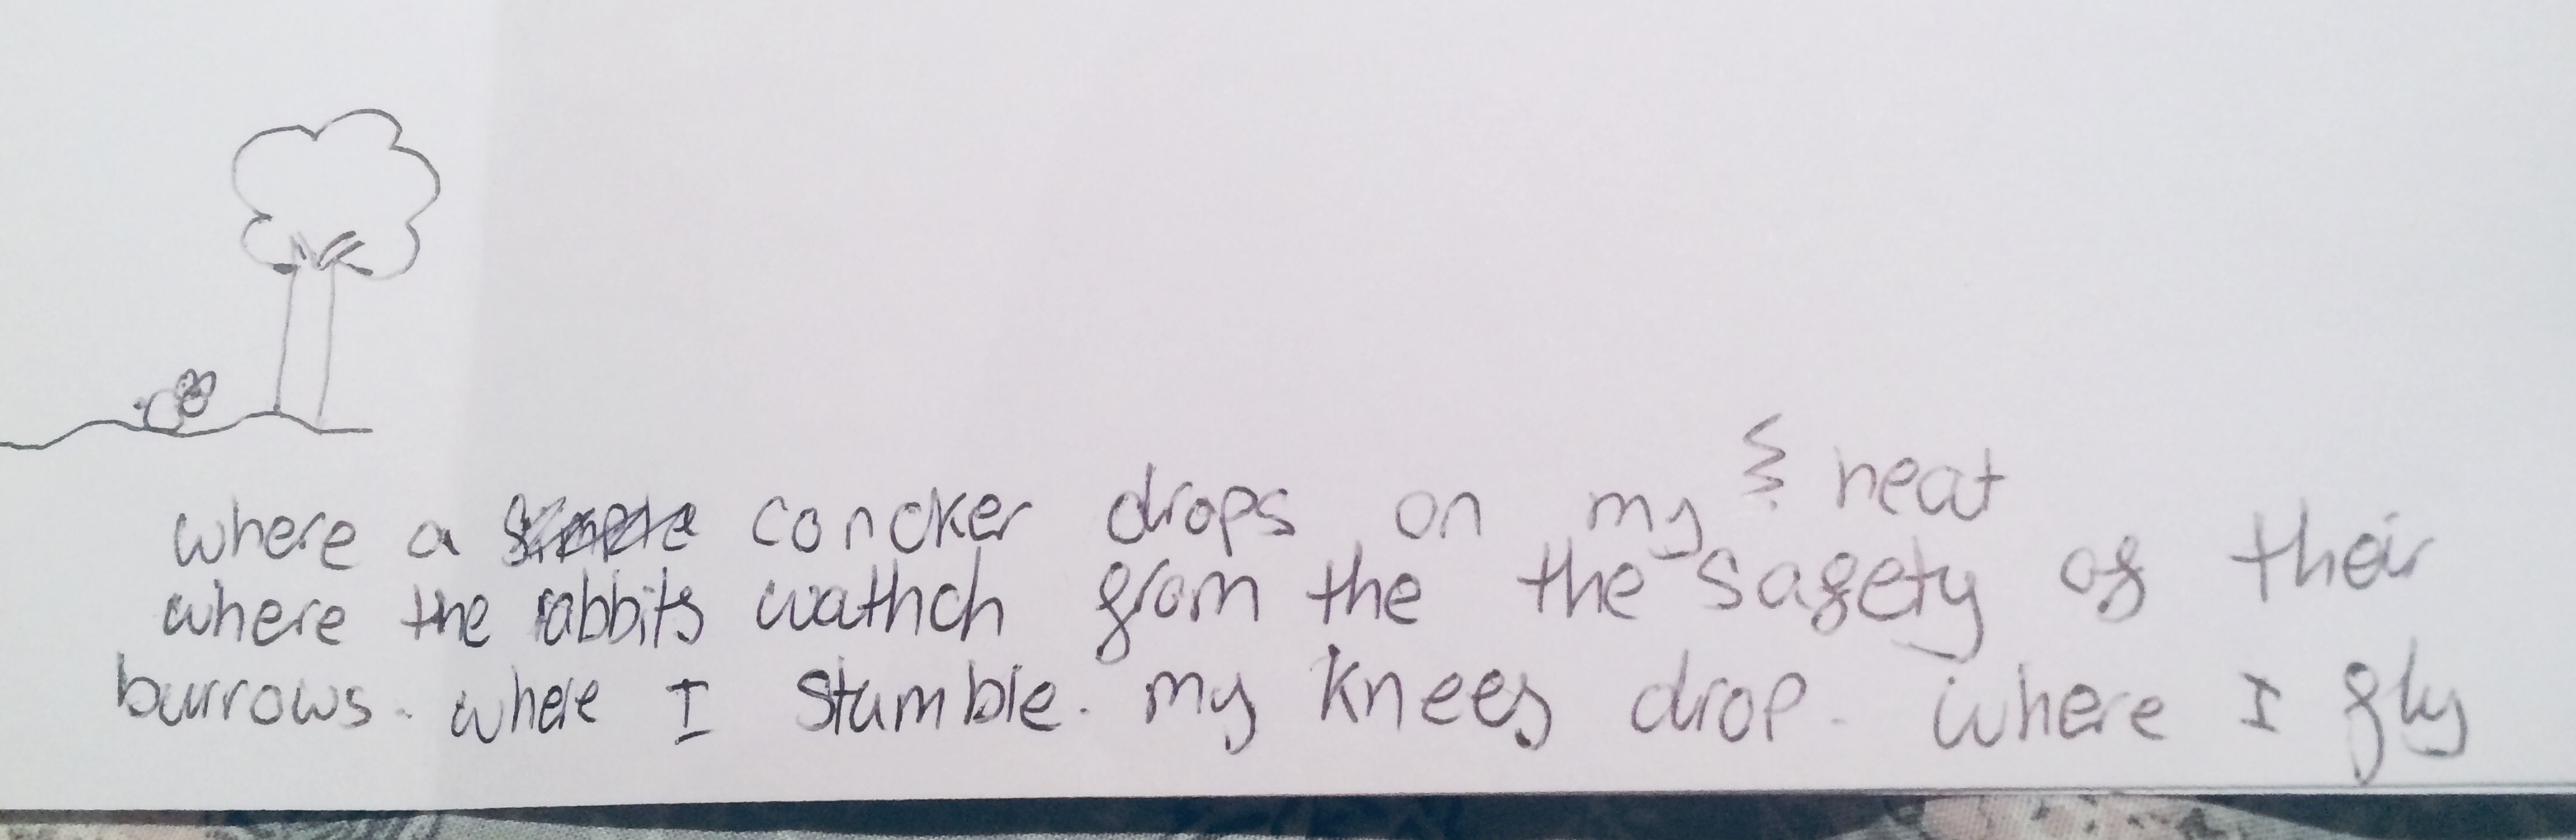 where a concker drops on my heat
where the rabbits wathch from the the safety of their
burrows. where I stumble. my knees drop. where I fly